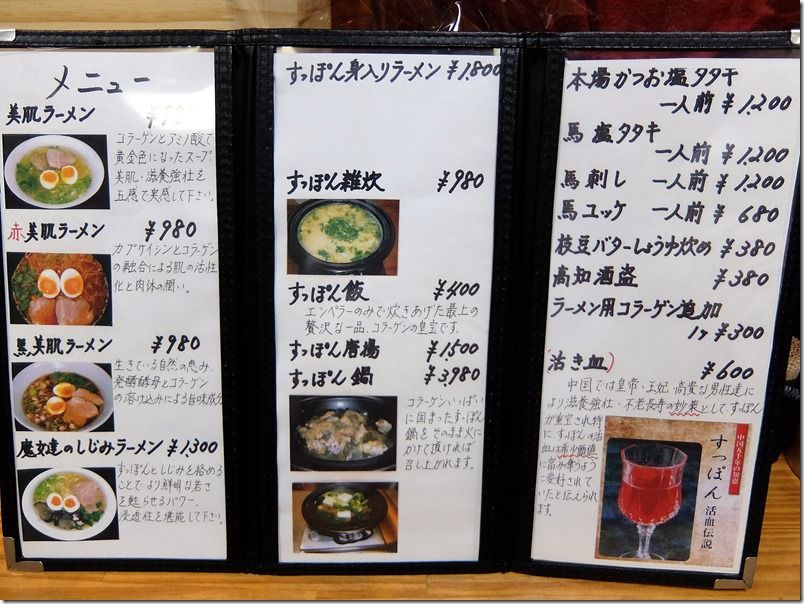 メニュー
美肌ラーメン
コラーゲンとアミノ酸で
黄金色になったスープ。
美肌・滋養強壮を
五感で実感して下さい。
赤美肌ラーメン ¥980
カプサイシンとコラーゲン
の融合による肌の活性
化と肉体の潤い。
黒美肌ラーメン ¥980
生きている自然の恵み、
発酵酵母とコラーゲン
の溶け込みによる旨味成分
魔女達のしじみラーメン ¥1,300
すっぽんとしじみを絡める
ことでより鮮明な若さ
を甦らせるパワー、
浸透性を堪能して下さい。
すっぽん身入りラーメン ¥1,800
すっぽん雑炊 ¥980
すっぽん飯 ¥400
エンペラーのみで炊きあげた最上の
贅沢な一品、コラーゲンの皇宝です。
すっぽん唐揚 ¥1,500
すっぽん鍋 ¥3,980
コラーゲンいっぱい
に固まったすっぽん
鍋をそのまま火に
かけて頂ければ
召し上がれます。
本場かつお塩タタキ
一人前 ¥1,200
馬塩タタキ
一人前 ¥1,200
馬刺し 一人前 ¥1,200
馬ユッケ 一人前 ¥680
枝豆バターしょうゆ炒め ¥380
高知酒盗 ¥380
ラーメン用コラーゲン追加
1ヶ ¥300
(活き血) ¥600
中国では皇帝・王妃・高貴な男性達に
より滋養強壮・不老長寿の妙薬としてすっぽん
が重宝され特
に、すっぽんの活
血は希少価値
に富み奪うよう
に愛好されて
いたと伝えられ
ます。
中国五千年の知恵
すっぽん 活血伝説